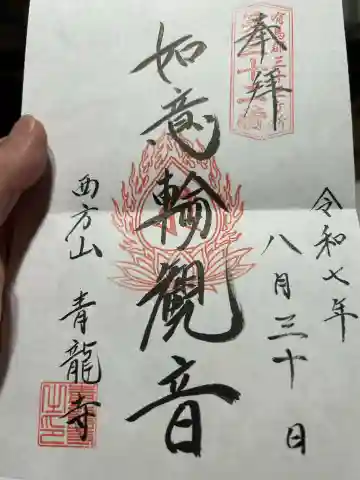 奉拝
令和七年
八月三十日
如意輪観音
西方山 青龍寺